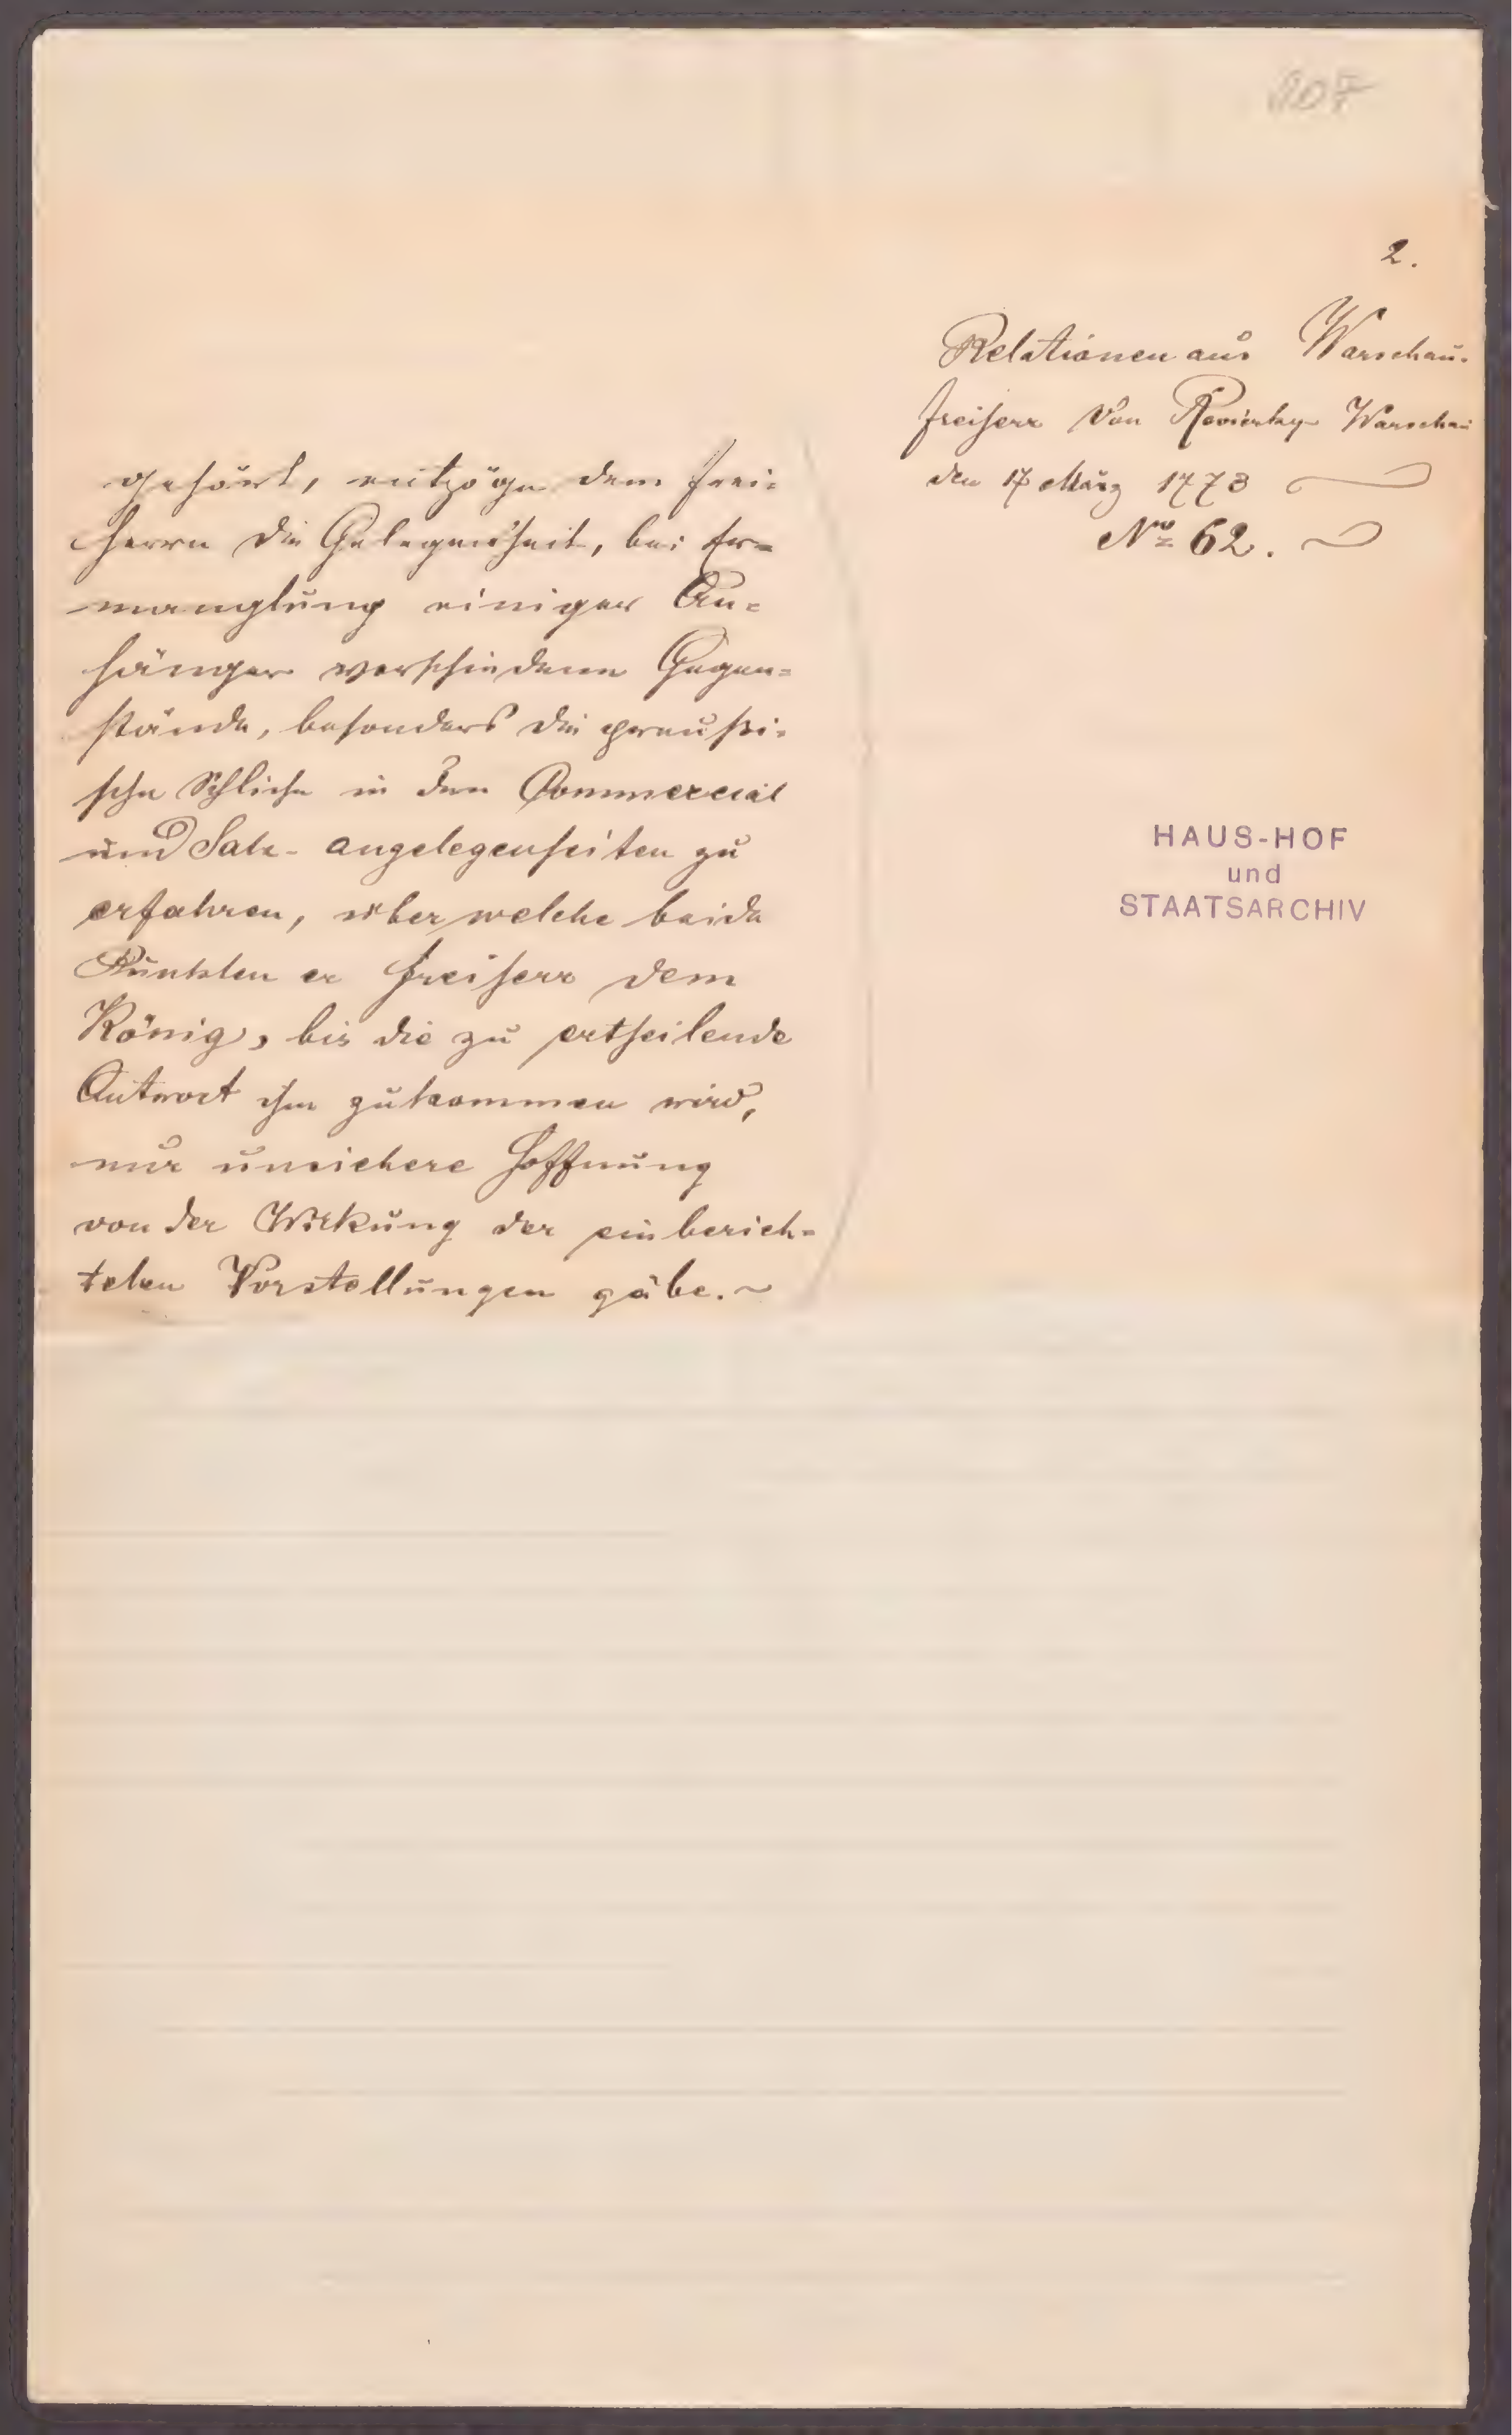 107
2.
Relationen aus Warschau.
Freiherr von Reviczky Warschau
den 17 März 1773
No 62.
gehört, entzöge dem Frei-
herrn die Gelegenheit, bei Er-
manglung einiger An-
hänger verschiedene Gegen-
stände, besonders die preußi-
sche Schliche in den Commercial
und Salz- angelegenheiten zu
erfahren, über welche beide
Punkten er Freiherr dem
König, bis die zu ertheilende
Antwort ihm zukommen wird,
nur unsichere Hoffnung
von der Wirkung der einberich-
teten Vorstellungen gäbe. ~
HAUS-HOF
und
STAATSARCHIV